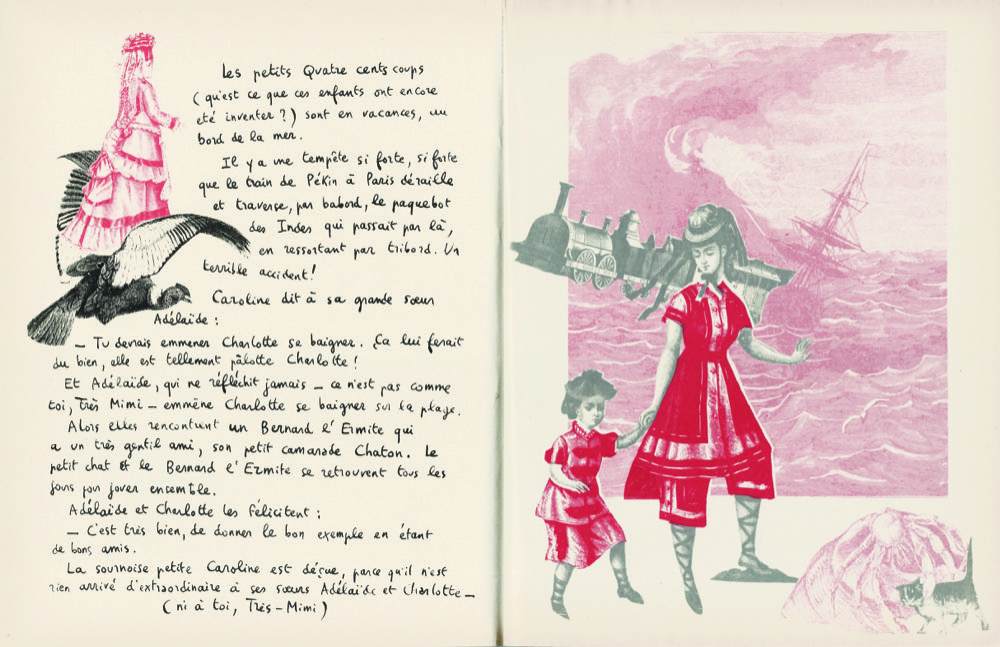 Les petits Quatre cents coups
(qu'est ce que ces enfants ont encore
été inventer ?) sont en vacances, au
bord de la mer.
Il y a une tempête si forte, si forte
que le train de Pékin à Paris déraille
et traverse, par babord, le paquebot
des Indes qui passait par là,
en ressortant par tribord. Un
terrible accident !
Caroline dit à sa grande sœur
Adélaïde :
— Tu devrais emmener Charlotte se baigner. Ça lui ferait
du bien, elle est tellement pâlotte Charlotte !
Et Adélaïde, qui ne réfléchit jamais — ce n'est pas comme
toi, Très Mimi — emmène Charlotte se baigner sur la plage.
Alors elles rencontrent un Bernard l'Ermite qui
a un très gentil ami, son petit camarade Chaton. Le
petit chat et le Bernard l'Ermite se retrouvent tous les
jours pour jouer ensemble.
Adélaïde et Charlotte les félicitent :
— C'est très bien, de donner le bon exemple en étant
de bons amis.
La sournoise petite Caroline est déçue, parce qu'il n'est
rien arrivé d'extraordinaire à ses sœurs Adélaïde et Charlotte —
(ni à toi, Très-Mimi)